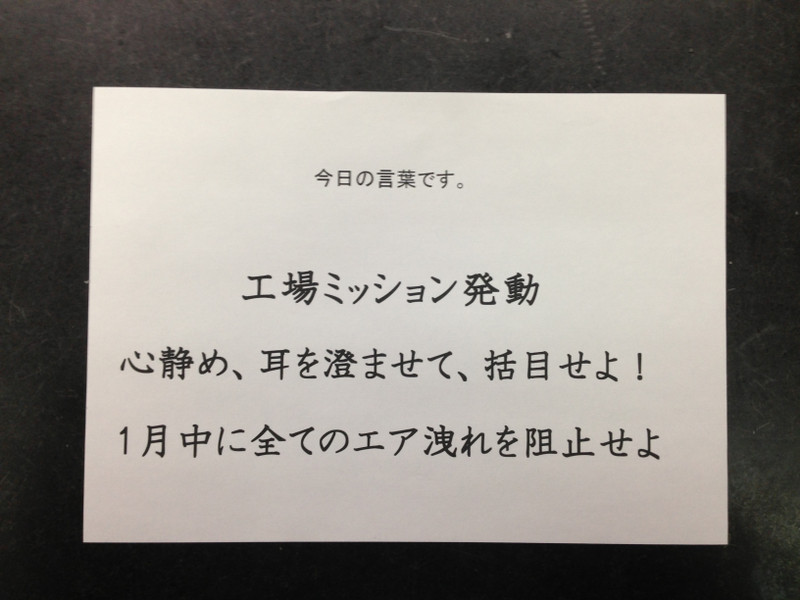 今日の言葉です。
工場ミッション発動
心静め、耳を澄ませて、括目せよ！
1月中に全てのエア洩れを阻止せよ